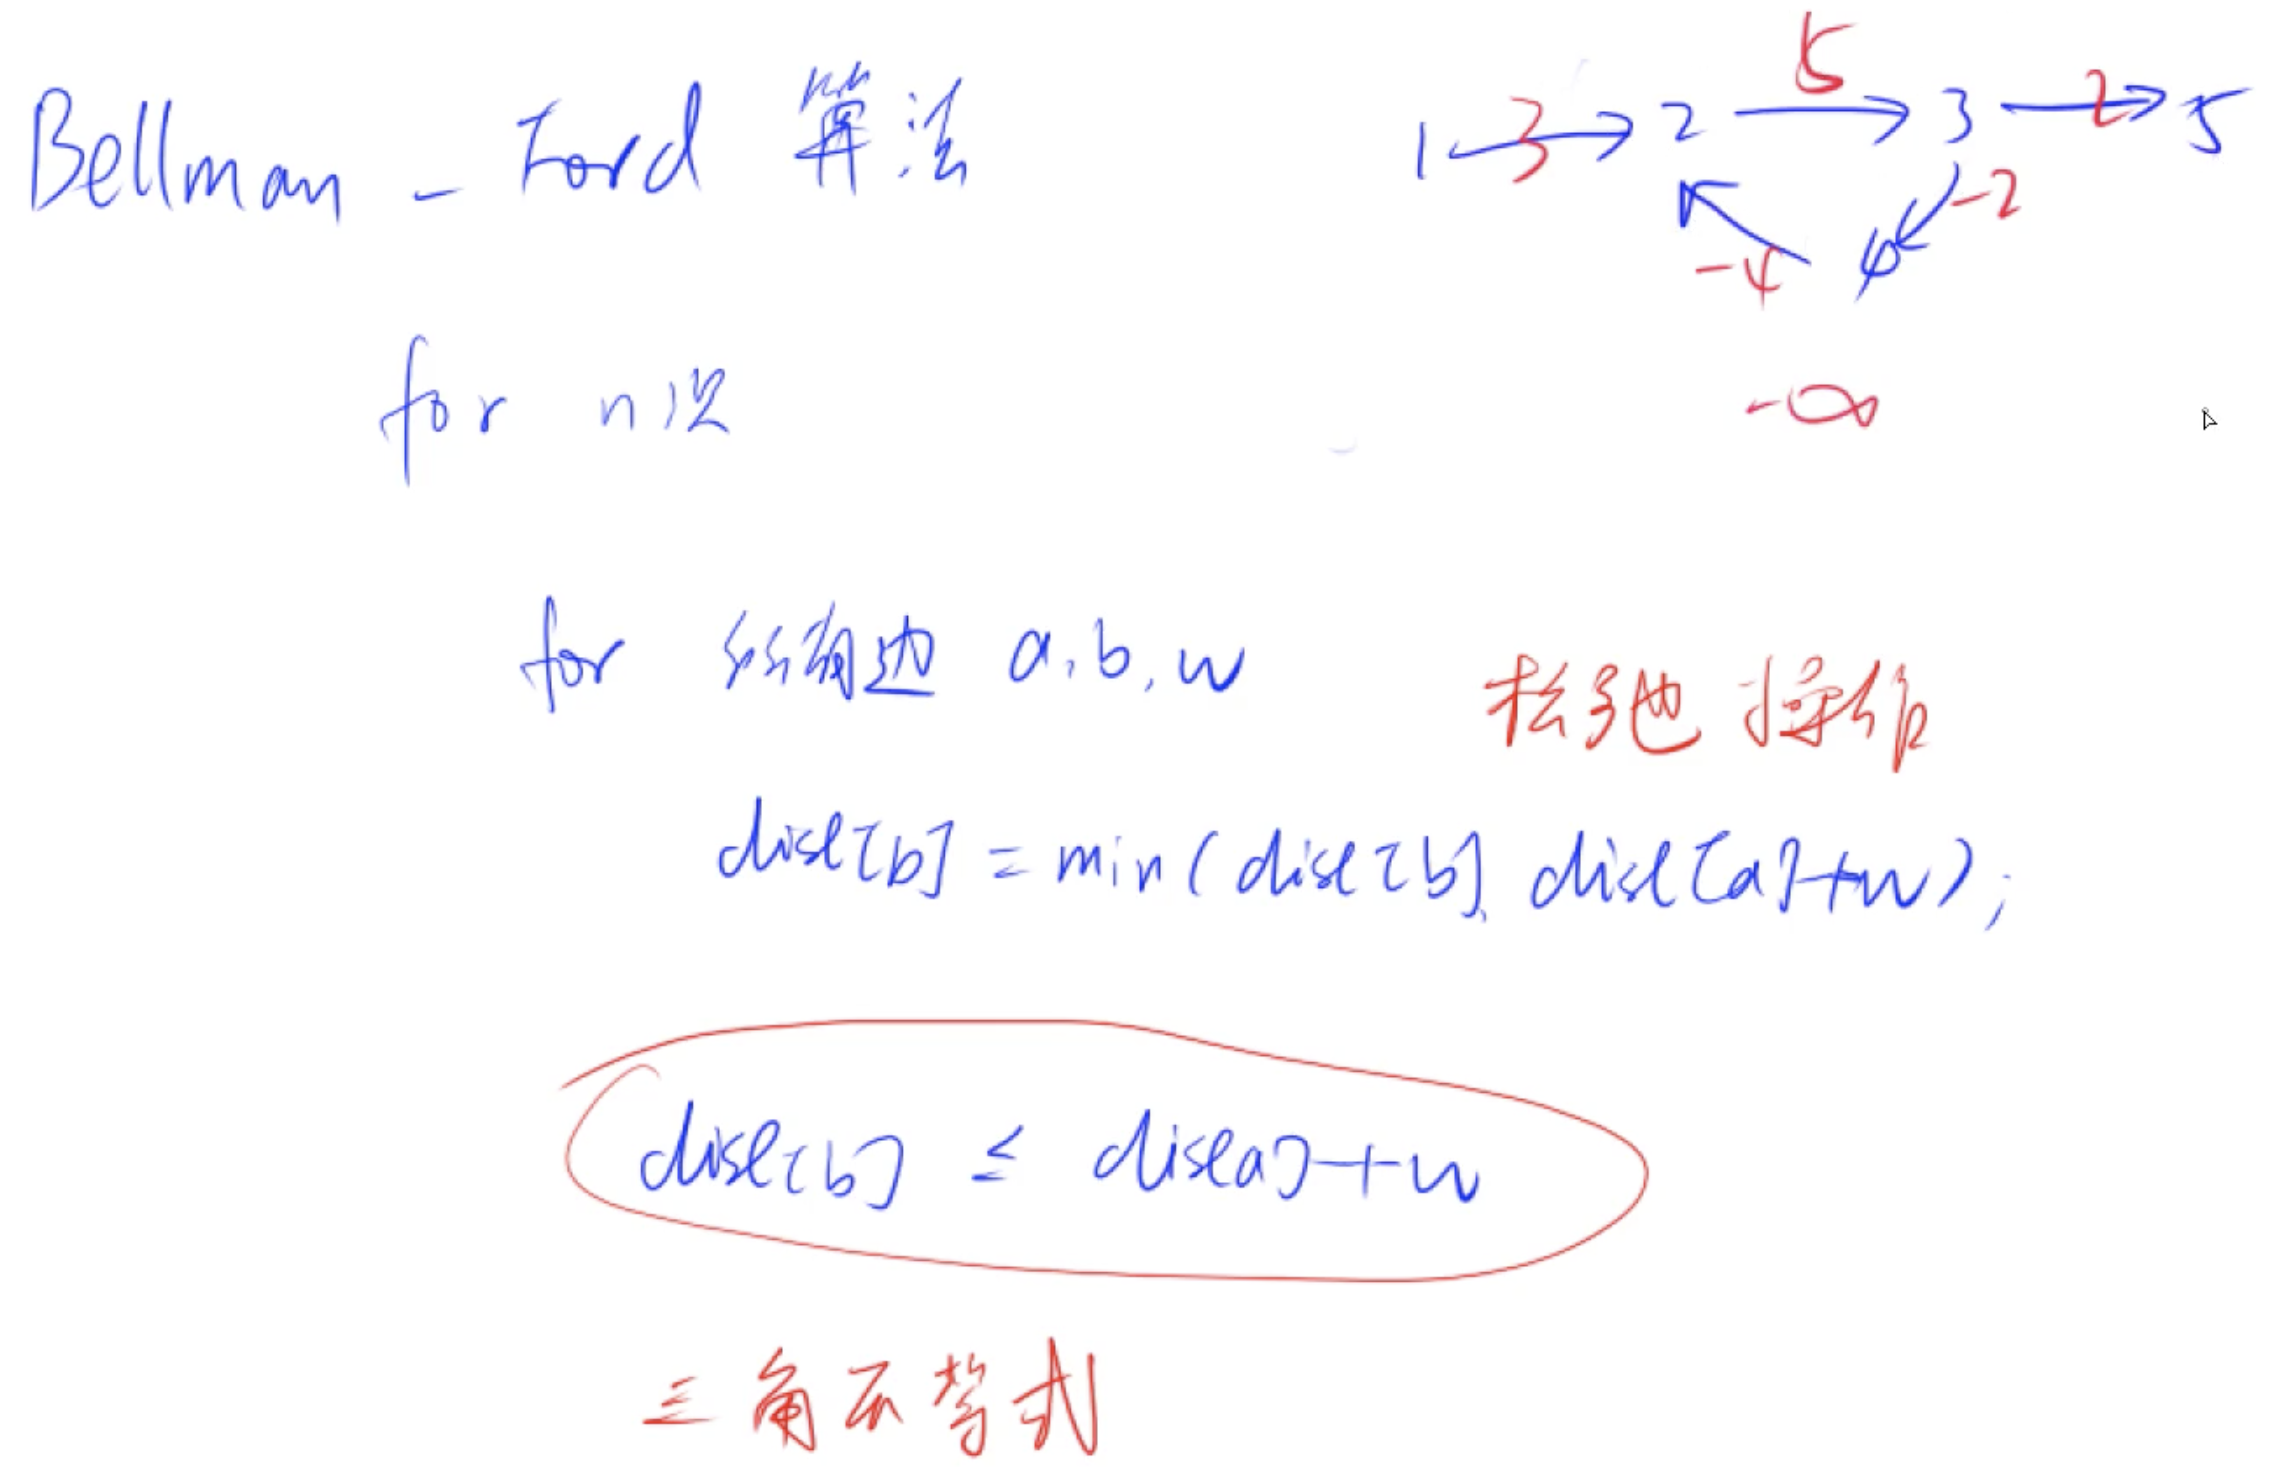 Bellman - Ford 算法
1 3 2 5 3 2 5
-4 4 -2
for n次
-∞
for 所有边 a,b,w
松弛操作
dist[b] = min(dist[b], dist[a]+w);
dist[b] ≤ dist[a]+w
三角不等式